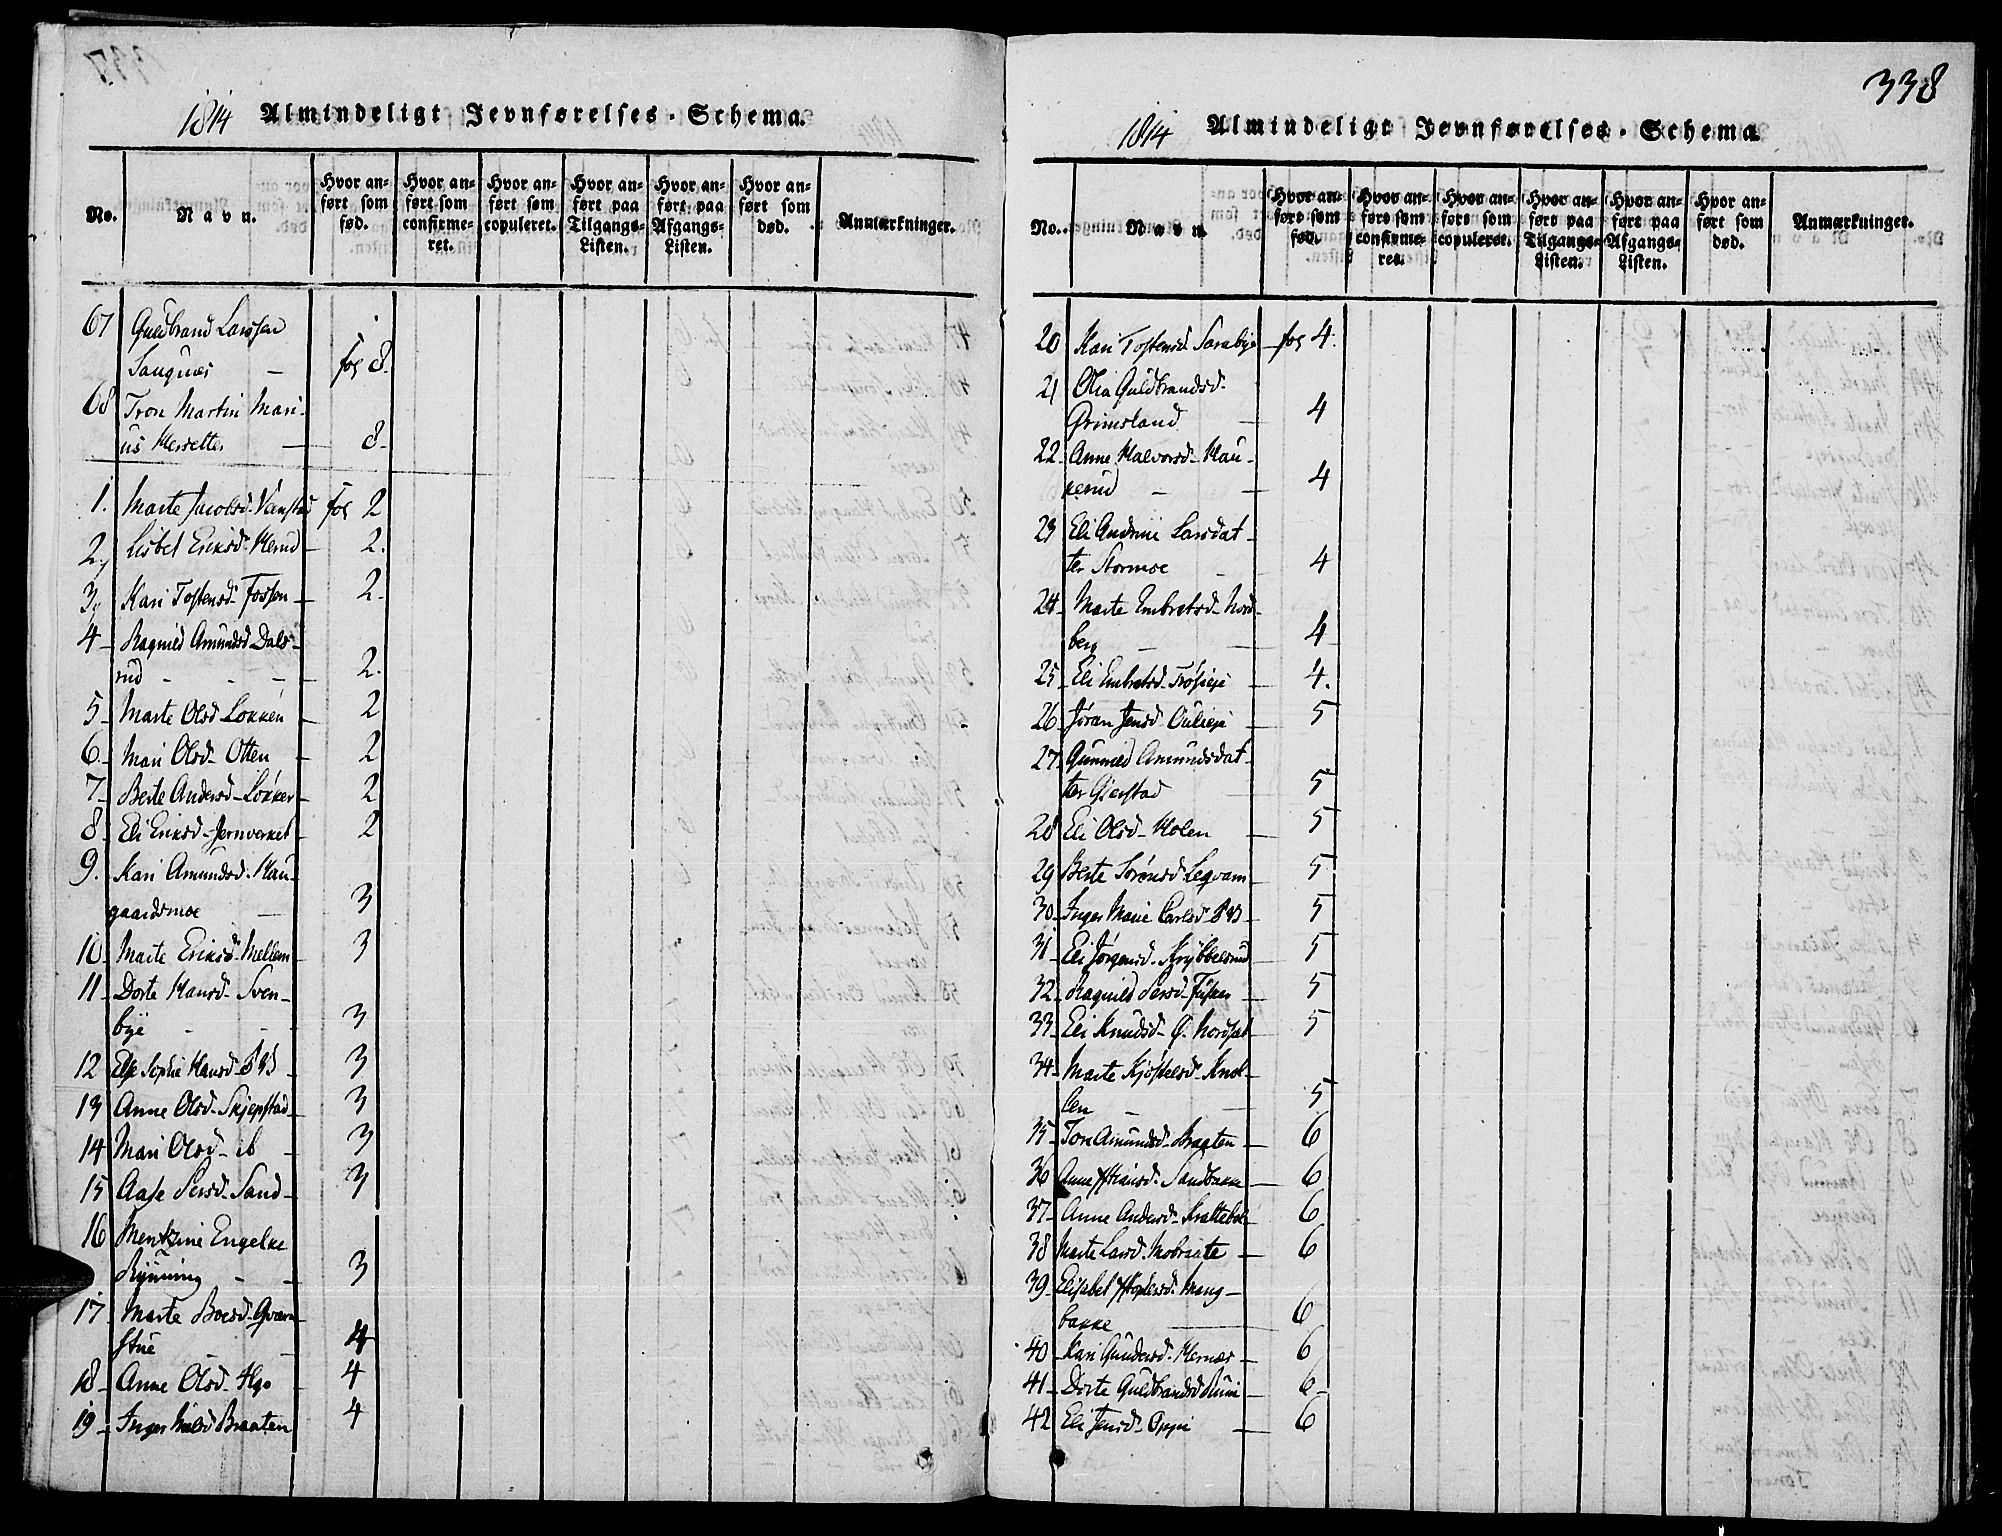 1814 Almindeligt Jevnførelses-Schema.
No.
Navn.
Hvor anført som fød.
Hvor anført som confirmeret.
Hvor anført som copuleret.
Hvor anført paa Tilgangs-Listen.
Hvor anført paa Afgangs-Listen.
Hvor anført som død.
Anmærkninger.
67 Guldbrand Larssen
Saugnæs - fol 8.
68 Tron Martin Mari-
us Mersetter — 8.
1. Marte Jacobsd. Vænstad fol 2
2, Lisbet Eriksd. Merud - 2.
3, Kari Tostensd. Fossen - 2.
4 - Ragnild Amundsd Dals-
rud - - - 2.
5 - Marte Olsd Løkken - 2
6 - Mari Olsd. Otten - 2
7 - Berte Andersd - Løkker - 2
8 - Eli Eriksd - Jernverket - 2
9. Kari Amundsd. Hau-
gaardsmoe - 3
10 - Marte Eriksd. Mellem - 3
11 - Dorte Hansd. Sven-
bye - - 3
12 Else Sophie Hansd - 3
13 Anne Olsd - Skjepstad - 3
14 Mari Olsd - ib - 3
15 Aase Persd - Sand - 3
16 Mentzine Engelke
Rynning - - 3
17 - Marte Boesd - Qværn
stue - - 4
18 - Anne Olsd - Algo - 4
19 - Inger Nielsd Braaten 4
338
1814 Almindeligt Jevnførelses-Schema
No.
Navn.
Hvor anført som fød.
Hvor anført som confirmeret.
Hvor anført som copuleret.
Hvor anført paa Tilgangs-Listen.
Hvor anført paa Afgangs-Listen.
Hvor anført som død.
Anmærkninger.
20 Kari Tostensd. Sarabye - fol 4.
21 Olia Guldbrandsd.
Grimsland - 4
22. Anne Halvorsd - Hau-
kerud - - 4
23 Eli Andrine Larsdat-
ter Stormoe - 4
24 - Marte Embretsd - Nord-
berg - - 4
25 - Eli Embretsd - - 4.
26 - Jøran Jensd - - 5
27 - Gunnild Amundsdat-
ter Gierstad - 5
28 Eli Olsd - Molen - 5
29 Berte Sørensd - 5
30 - Inger Marie Carlsd - 5
31 - Eli Jørgensd - Krybbelsrud 5
32 - Ragnild Persd - Fusker - 5
33 - Eli Knudsd - Ø. Nordset - 5
34 - Marte Kjøstelsd. Knol-
len - - 5
35 - Tore Amundsd - Braaten - 6
36 Anne Hansd. Sandbakke - 6
37 - Anne Andersd - Krattebøl - 6
38 Marte Larsd. Mobraate - 6
39 - Elisabet Mang-
bakke - 6
40 Kari Gundersd. Mernæs - 6
41 - Dorte Guldbrandsd - 6
42 Eli Jensd - Oppi - 6